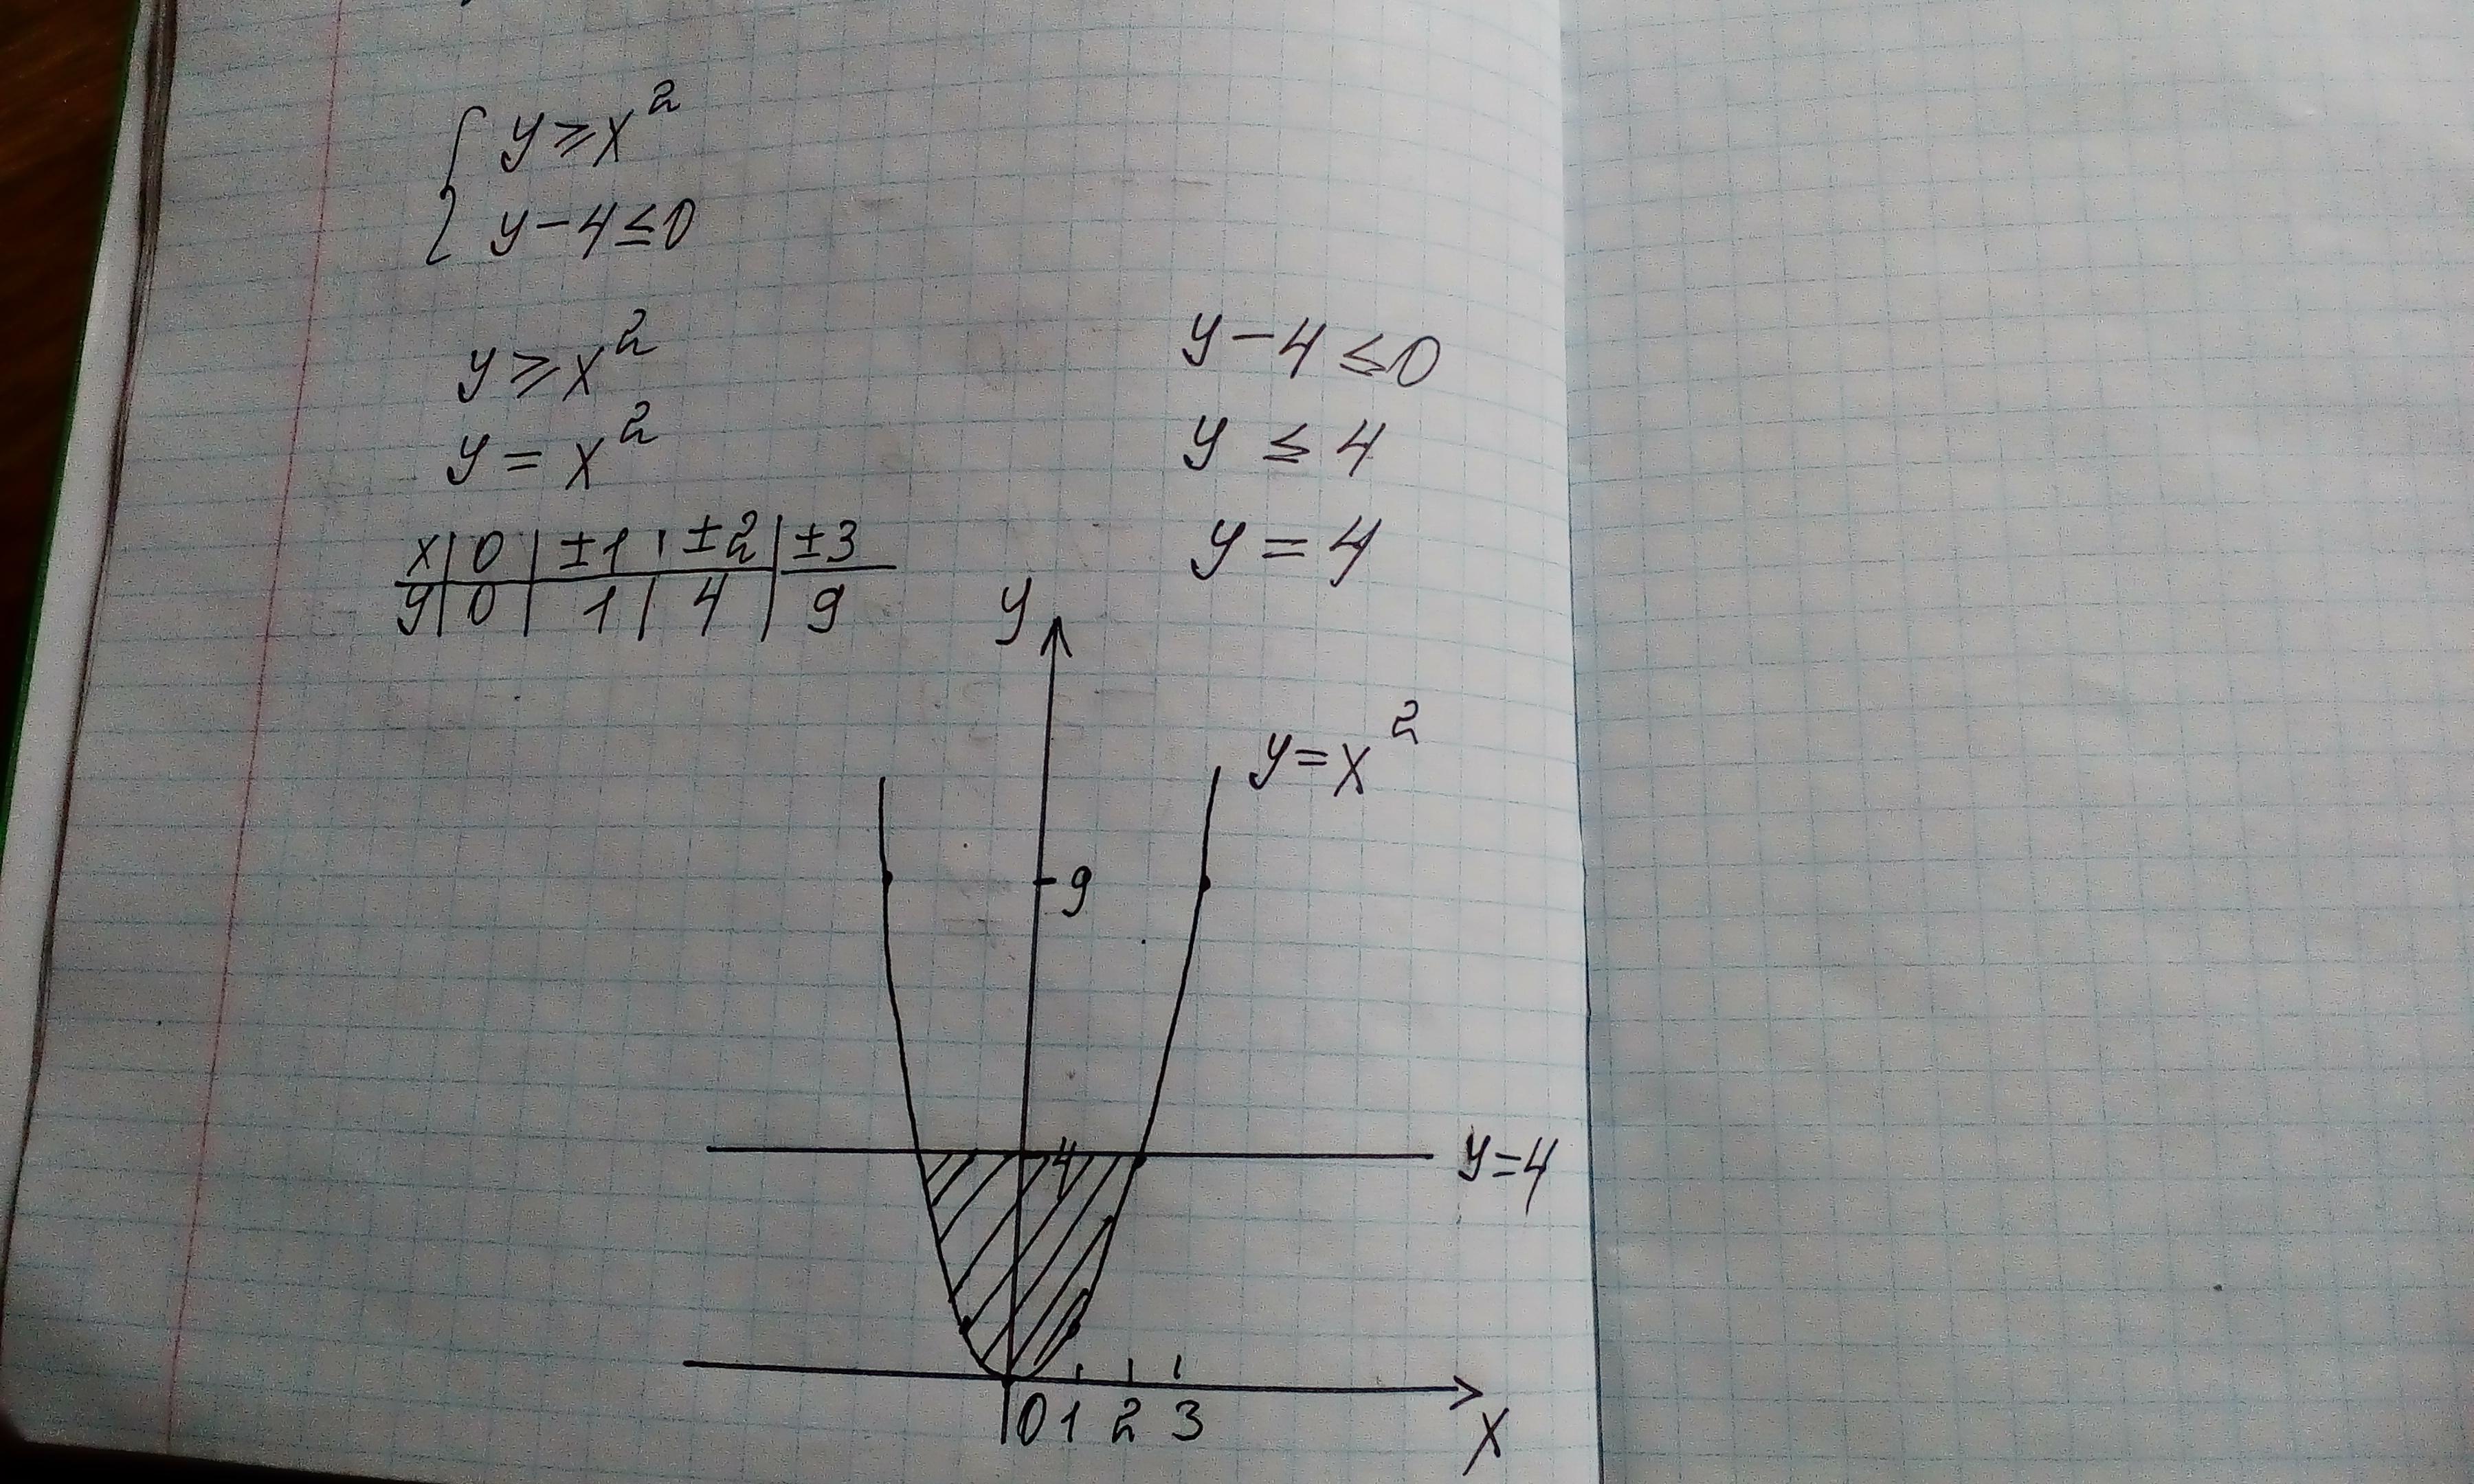 { y ≥ x²
y - 4 ≤ 0
y ≥ x²
y = x²
x | 0 | ±1 | ±2 | ±3
y | 0 | 1 | 4 | 9
y - 4 ≤ 0
y ≤ 4
y = 4
y
y = x²
9
4
y = 4
0 1 2 3
x